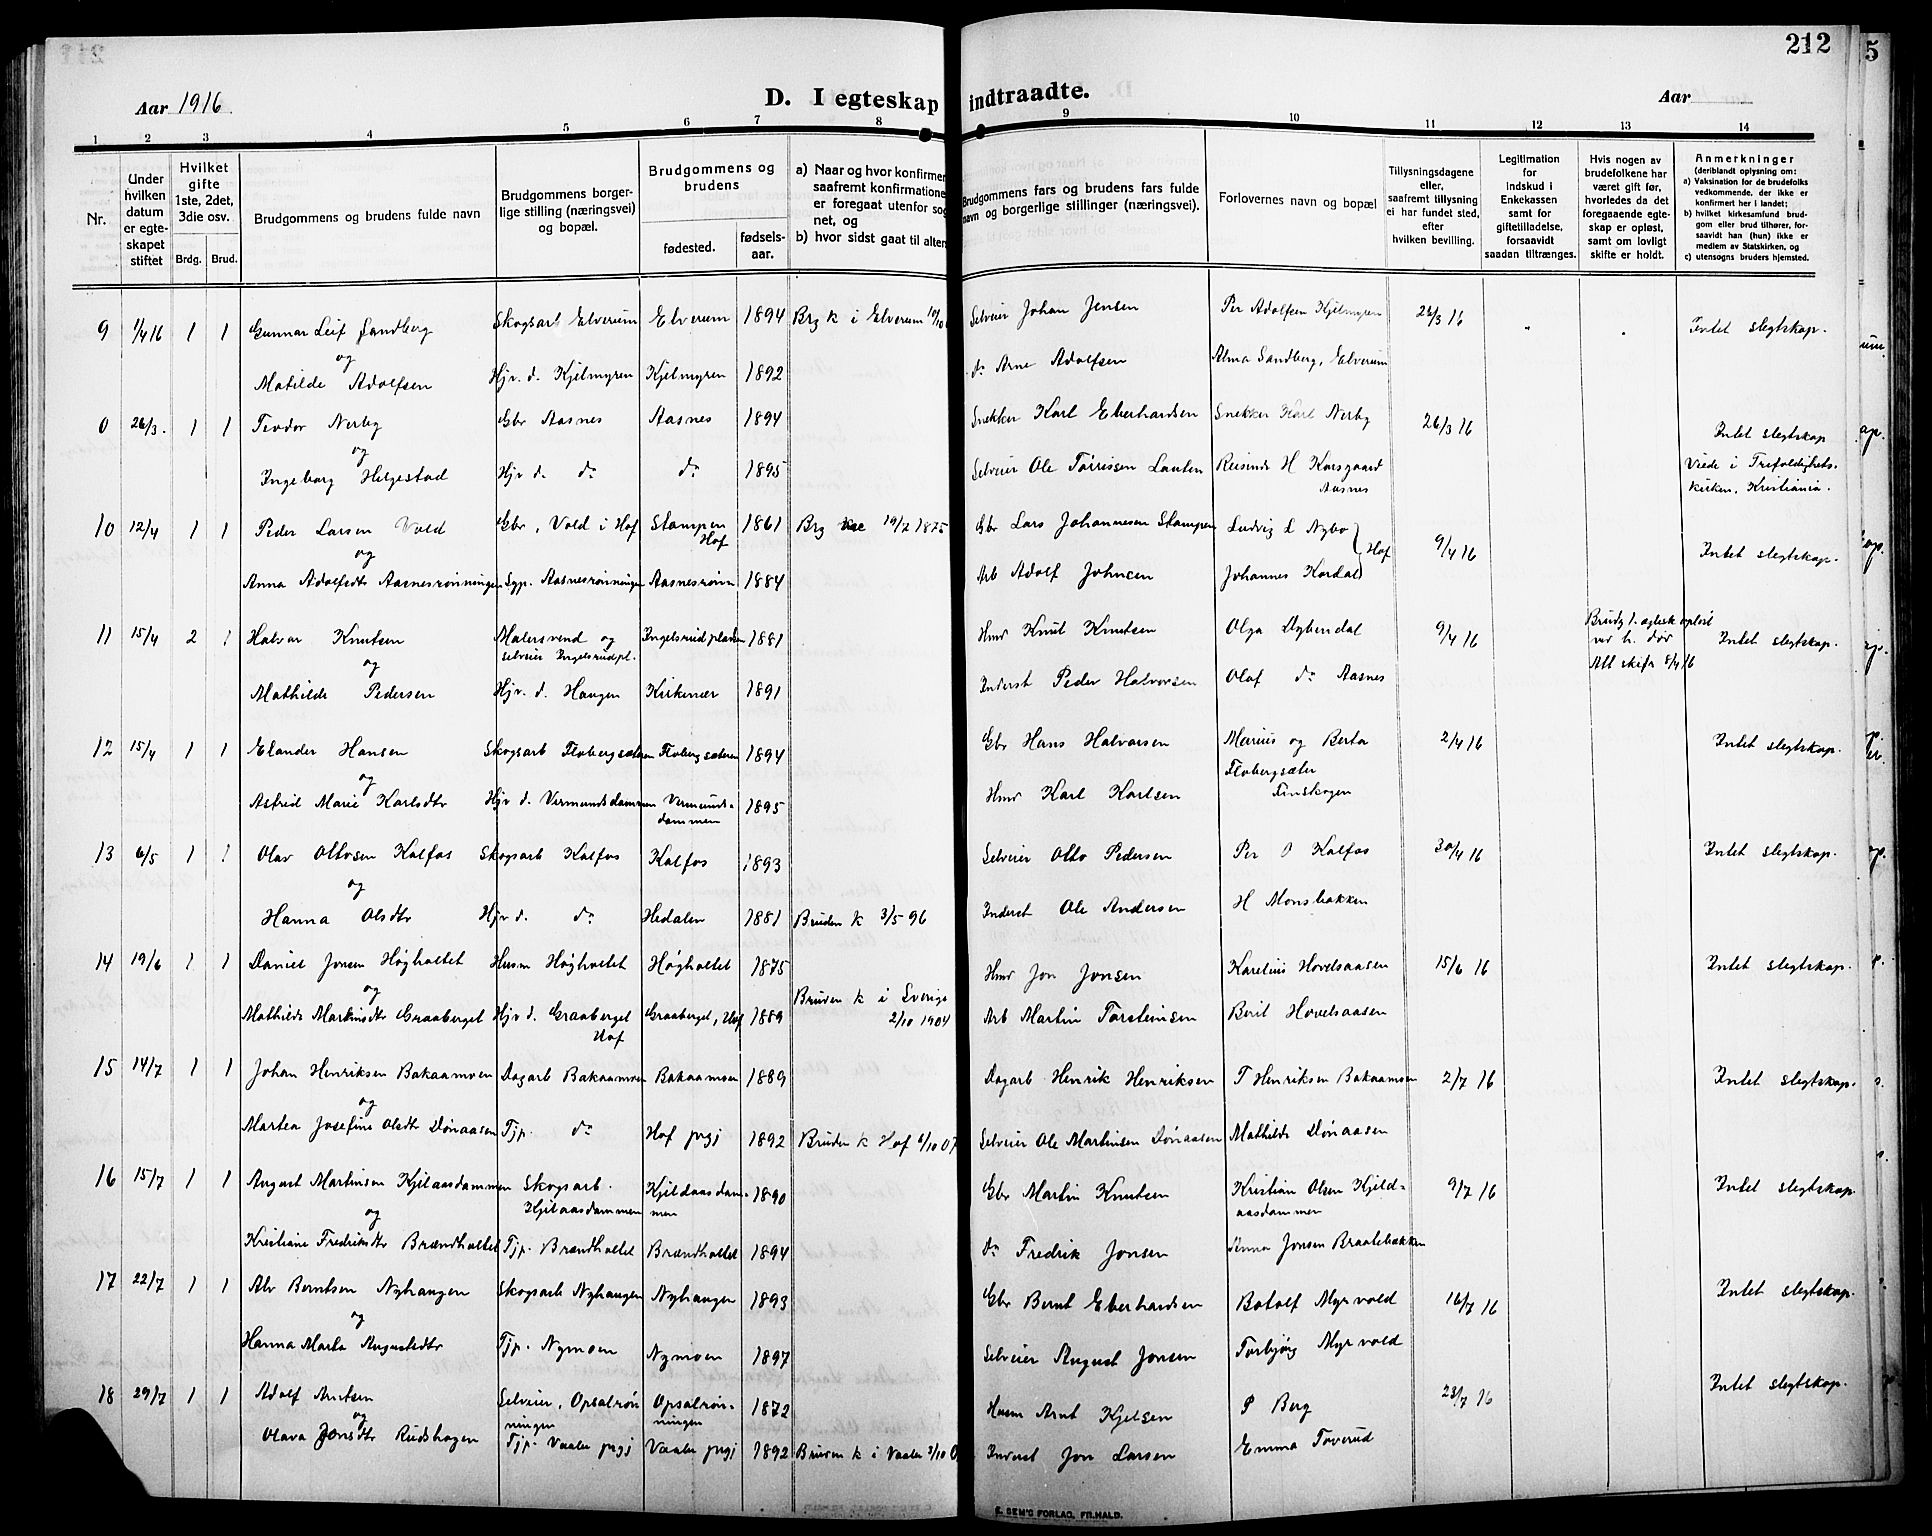 212
5
Aar 1916
D. I egteskap indtraadte.
Aar
1 2 3 4 5 6 7 8 9 10 11 12 13 14
Nr.
Under hvilken datum er egteskapet stiftet
Hvilket gifte 1ste, 2det, 3die osv.
Brdg. Brud.
Brudgommens og brudens fulde navn
Brudgommens borgerlige stilling (næringsvei) og bopæl.
Brudgommens og brudens
fødested. fødselsaar.
a) Naar og hvor konfirmer
saafremt konfirmatione
er foregaat utenfor sog
net, og
b) hvor sidst gaat til alters
Brudgommens fars og brudens fars fulde
navn og borgerlige stillinger (næringsvei).
Forlovernes navn og bopæl
Tillysningsdagene
eller,
saafremt tillysning
ei har fundet sted,
efter
hvilken bevilling.
Legitimation
for
indskud i
Enkekassen
samt for
giftetilladelse,
forsaavidt
saadan tiltrænges.
Hvis nogen av
brudefolkene har
været gift før,
hvorledes da det
foregaaende egte-
skap er opløst,
samt om lovligt
skifte er holdt.
Anmerkninger
(deriblandt oplysning om:
a) Vaksination for de brudefolks
vedkommende, der ikke er
konfirmert her i landet;
b) hvilket kirkesamfund brud-
gom eller brud tilhører, for-
saavidt han (hun) ikke er
medlem av Statskirken, og
c) utensogns bruders hjemsted.
9 1/4 16 1 1 Gunnar Leif Sandberg Skogsarb Elverum Elverum 1894 Brg k i Elverum 10/10 Selveier Johan Jensen Per Adolfsen Kjelmyren 26/3 16 " . Intet slegtskap.
og
Matilde Adolfsen Hjv. d. Kjelmyren Kjelmyren 1892 do Arne Adolfsen Alma Sandberg, Elverum
0 26/3. 1 1 Teodor Nerby Gbr Aasnes Aasnes 1894 Snekker Karl Eberhardsen Snekker Karl Nerby 26/3 16 Intet slegtskap
og
Ingeborg Helgestad Hjv d. do do 1895 Selveier Ole Tørrissen Lauten Reisende H Korsgaard Aasnes Viede i Trefoldighets-
kirken, Kristiania.
10 12/4 1 1 Peder Larsen Vold Gbr, Vold i Hof Stampen Hof 1861 Brg 19/7 1875 Gbr Lars Johannesen Stampen Ludvig L Nybo 9/4 16 Intet slegtskap.
og Hof
Anna Adolfsdtr Aasnesrønningen Syp. Aasnesrønningen Aasnesrønn 1884 Arb Adolf Johnsen Johannes Kordal
11 15/4 2 1 Halvor Knutsen Malersvend og selveier Ingelsrudpl. Ingelsrudpladsen 1881 Hmd Knut Knutsen Olga Dybendal 9/4 16 Brudg 1. egtesk opløst
ved h. død
Att skifr 8/4 16 Intet slegtskap.
og
Mathilde Pedersen Hjv. d. Haugen Kirkenær 1891 Inderst Peder Halvorsen Olaf do Aasnes
12 15/4 1 1 Elander Hansen Skogsarb Flobergsæteren Flobergsæteren 1894 Gbr Hans Halvorsen Marius og Berta 2/4 16 Intet slegtskap.
og Flobergsæter
Astrid Marie Karlsdtr Hjv d. Vermundsdammen Vermunds-
dammen 1895 Hmd Karl Karlsen Finskogen
13 6/5 1 1 Olav Ottosen Kalfos Skogsarb Kalfos Kalfos 1893 Selveier Otto Pedersen Per O Kalfos 30/4 16 Intet slegtskap.
og
Hanna Olsdtr Hjv d. do Hedalen 1881 Bruden k 3/5 96 Inderst Ole Andersen H Monsbakken
14 19/6 1 1 Daniel Jonsen Høgholtet Husm Høgholtet Høgholtet 1875 Hmd Jon Jonsen Karelius Hovelsaasen 15/6 16 Intet slegtskap.
og
Mathilde Martinsdtr Graaberget Hjv d. Graaberget Hof Graaberget, Hof 1889 Bruden k i Sverige
2/10 1904 Arb Martin Torsteinsen Berit Hovelsaasen
15 14/7 1 1 Johan Henriksen Bakaamoen Dagarb Bakaamoen Bakaamoen 1889 Dagarb Henrik Henriksen T Henriksen Bakaamoen 2/7 16 Intet slegtskap.
og
Martea Josefine Olsdtr Dønaasen Tjp. do Hof prgj 1892 Bruden k Hof 6/10 07 Selveier Ole Martinsen Dønaasen Mathilde Dønaasen
16 15/7 1 1 August Martinsen Kjelaasdammen Skogsarb. Kjelaasdammen Kjeldaasdam-
men 1890 Gbr Martin Knutsen Kristian Olsen Kjeld-
aasdammen 9/7 16 Intet slegtskap.
og
Kristiane Fredriksdtr Brændholtet Tjp. Brændholtet Brændholtet 1894 do Fredrik Jonsen Jonsen Braatebakken
17 22/7 1 1 Alv Berntsen Nyhaugen Skogsarb Nyhaugen Nyhaugen 1893 Gbr Bernt Eberhardsen Botolf Myrvold 16/7 16 Intet slegtskap.
og
Hanna Marta Augustsdtr Tjp. Nymoen Nymoen 1897 Selveier August Jonsen Torbjørg Myrvold
18 29/7 1 1 Adolf Arntsen Selveier, Opsalrøn
ningen Opsalrøn-
ningen 1872 Husm Arnt Kjelsen P Berg 23/7 16 Intet slegtskap.
og
Olava Jonsdtr Rudshagen Tjp. Vaaler prgj Vaaler prgj 1892 Bruden k i Vaaler 3/10 0 Inderst Jon Larsen Emma Toverud
E. SEM'S FORLAG, FR.HALD.